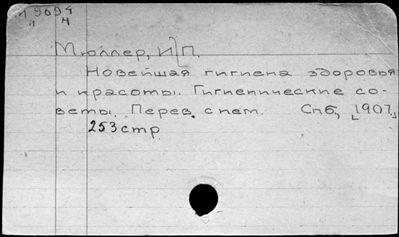 И 9694
и н
Мюллер, И]П.
Новейшая гигиена здоровья
и красоты. Гигиенические со-
веты. Перев. с нем. Спб, [1907]
253 стр